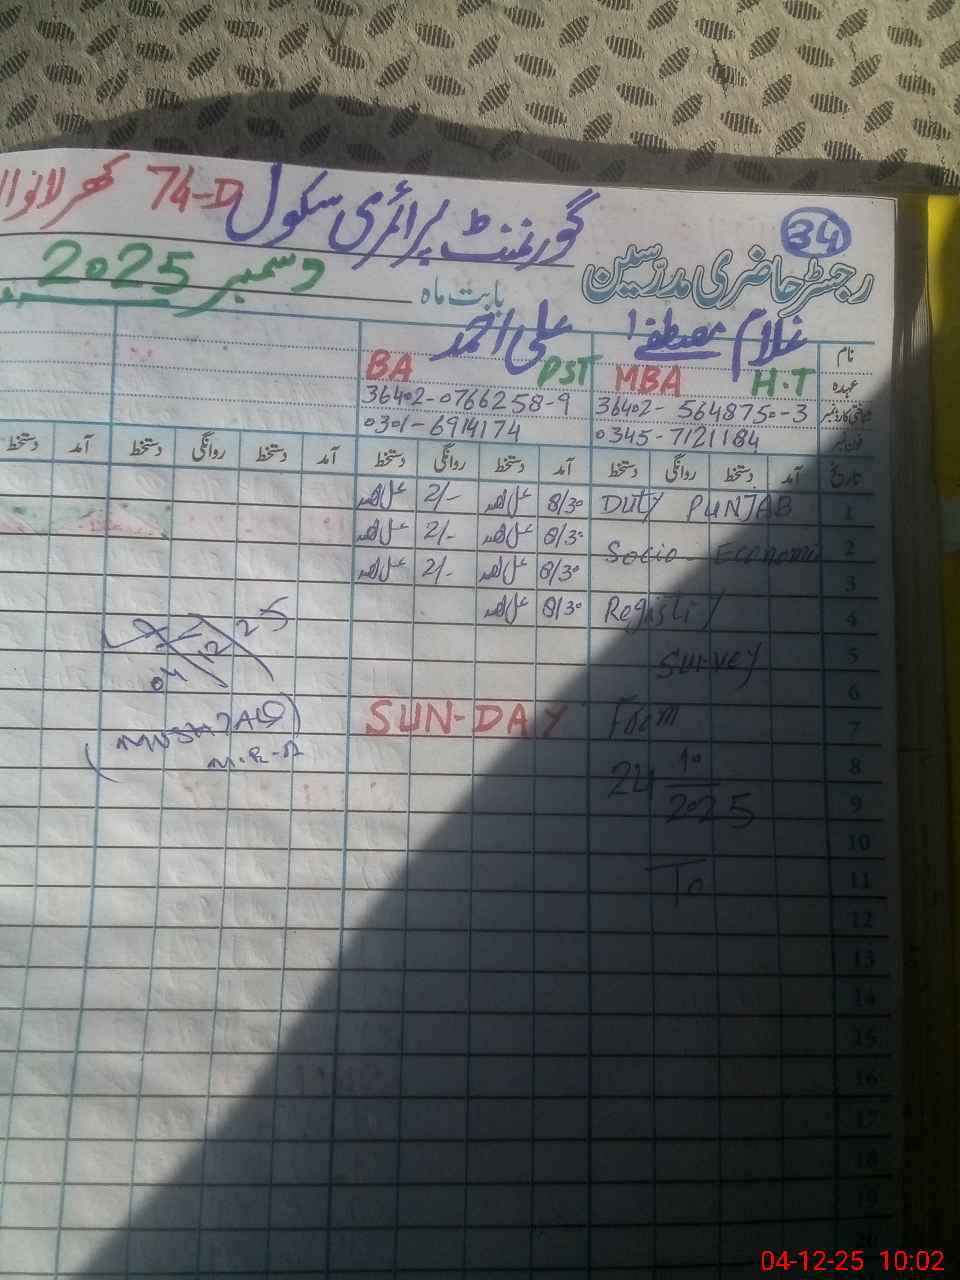 34
گورنمنٹ پرائمری سکول 74-D
رجسٹر حاضری مدرسین
بابت ماہ دسمبر 2025
نام غلام مصطفےٰ علی احمد
عہدہ MBA H.T BA PST
شناختی کارڈ نمبر 36402-5648750-3 36402-0766258-9
فون نمبر 0345-7121184 0301-6914174
تاریخ آمد دستخط روانگی دستخط آمد دستخط روانگی دستخط آمد دستخط روانگی دستخط آمد دستخط
1 Duty PUNJAB 8/30 علی احمد 2/- علی احمد
2 Socio-Economic 8/30 علی احمد 2/- علی احمد
3 8/30 علی احمد 2/- علی احمد
4 Registry 8/30 علی احمد
5 Survey
04 12 25
6
7 From SUN-DAY
8 24 10
9 2025
10
11 To
12
13
14
15
16
17
18
19
20
04-12-25 10:02